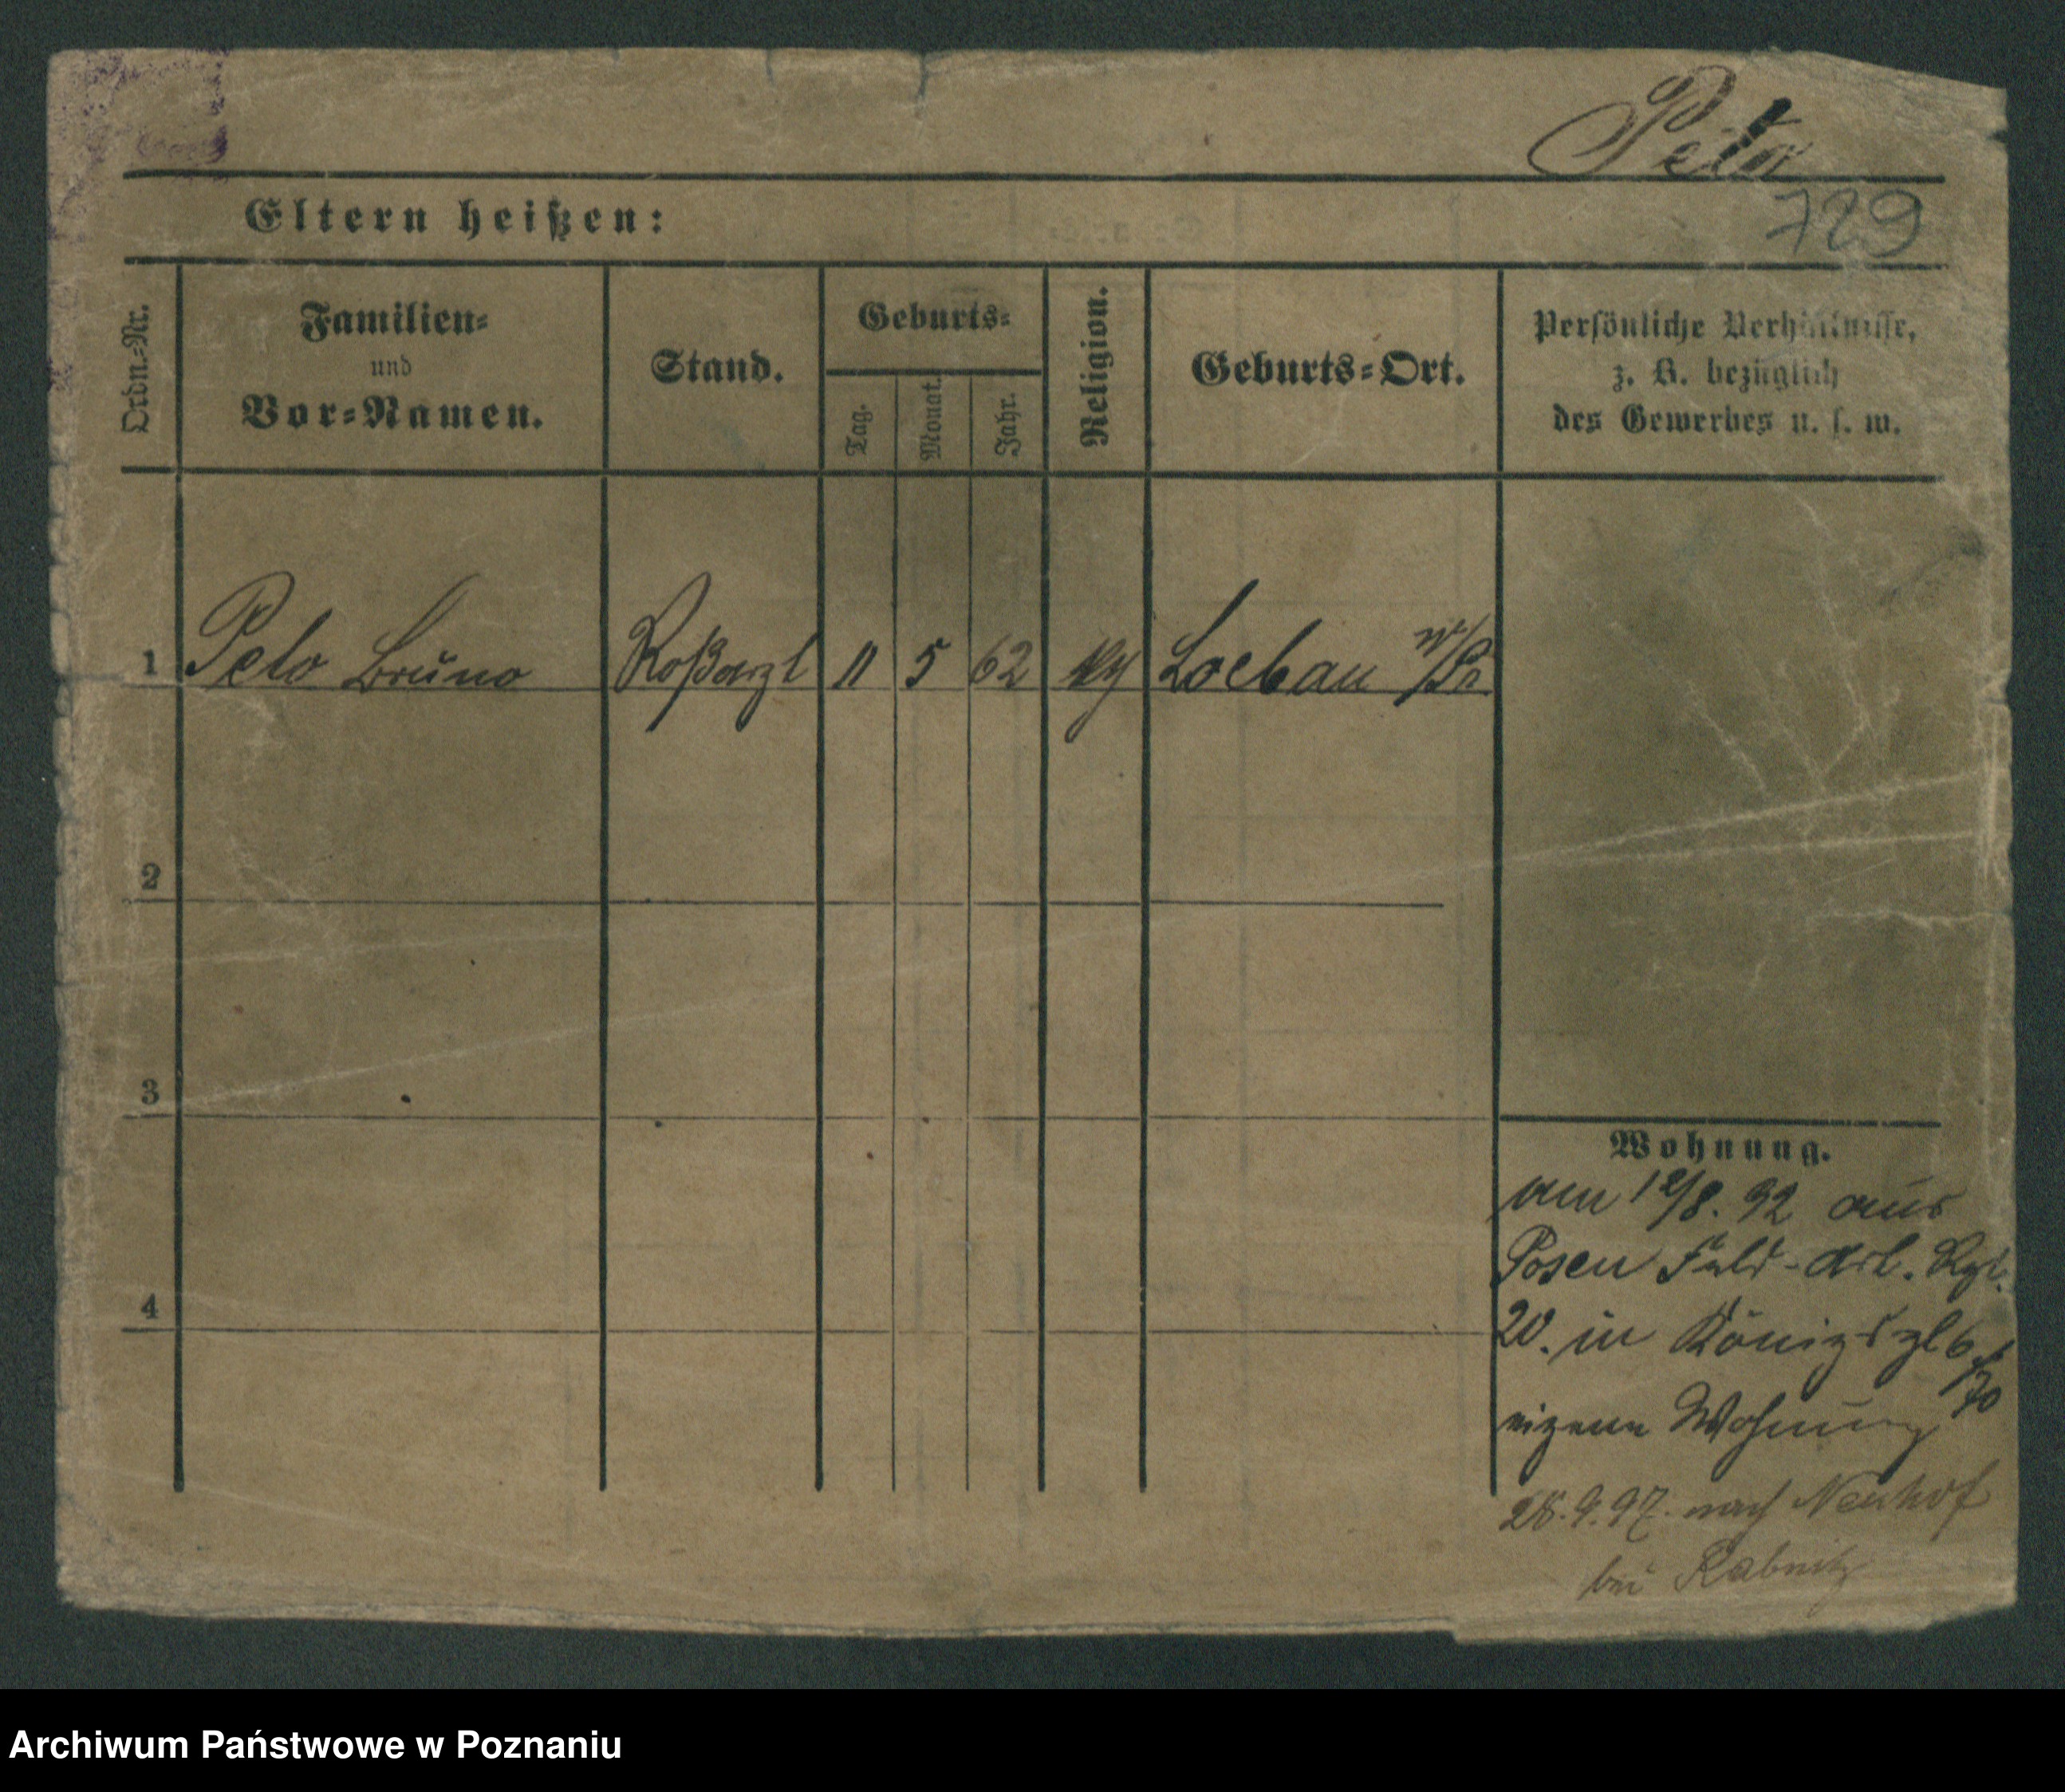 Peto
729
Eltern heißen:
Ordn.-Nr.
Familien-
und
Vor-Namen.
Stand.
Geburts-
Tag.
Monat.
Jahr.
Religion.
Geburts-Ort.
Persönliche Verhältnisse,
z. B. bezüglich
des Gewerbes u. s. w.
1 Peto Bruno Roßarzt 11 5 62 Loebau W/Pr
2
3
4
Wohnung.
am 12/8. 92 aus
Posen Feld-Art. Rgt.
20. in Königspl 6
eigene Wohnung
28.9.97. nach Neuhof
bei Kabnitz
Archiwum Państwowe w Poznaniu